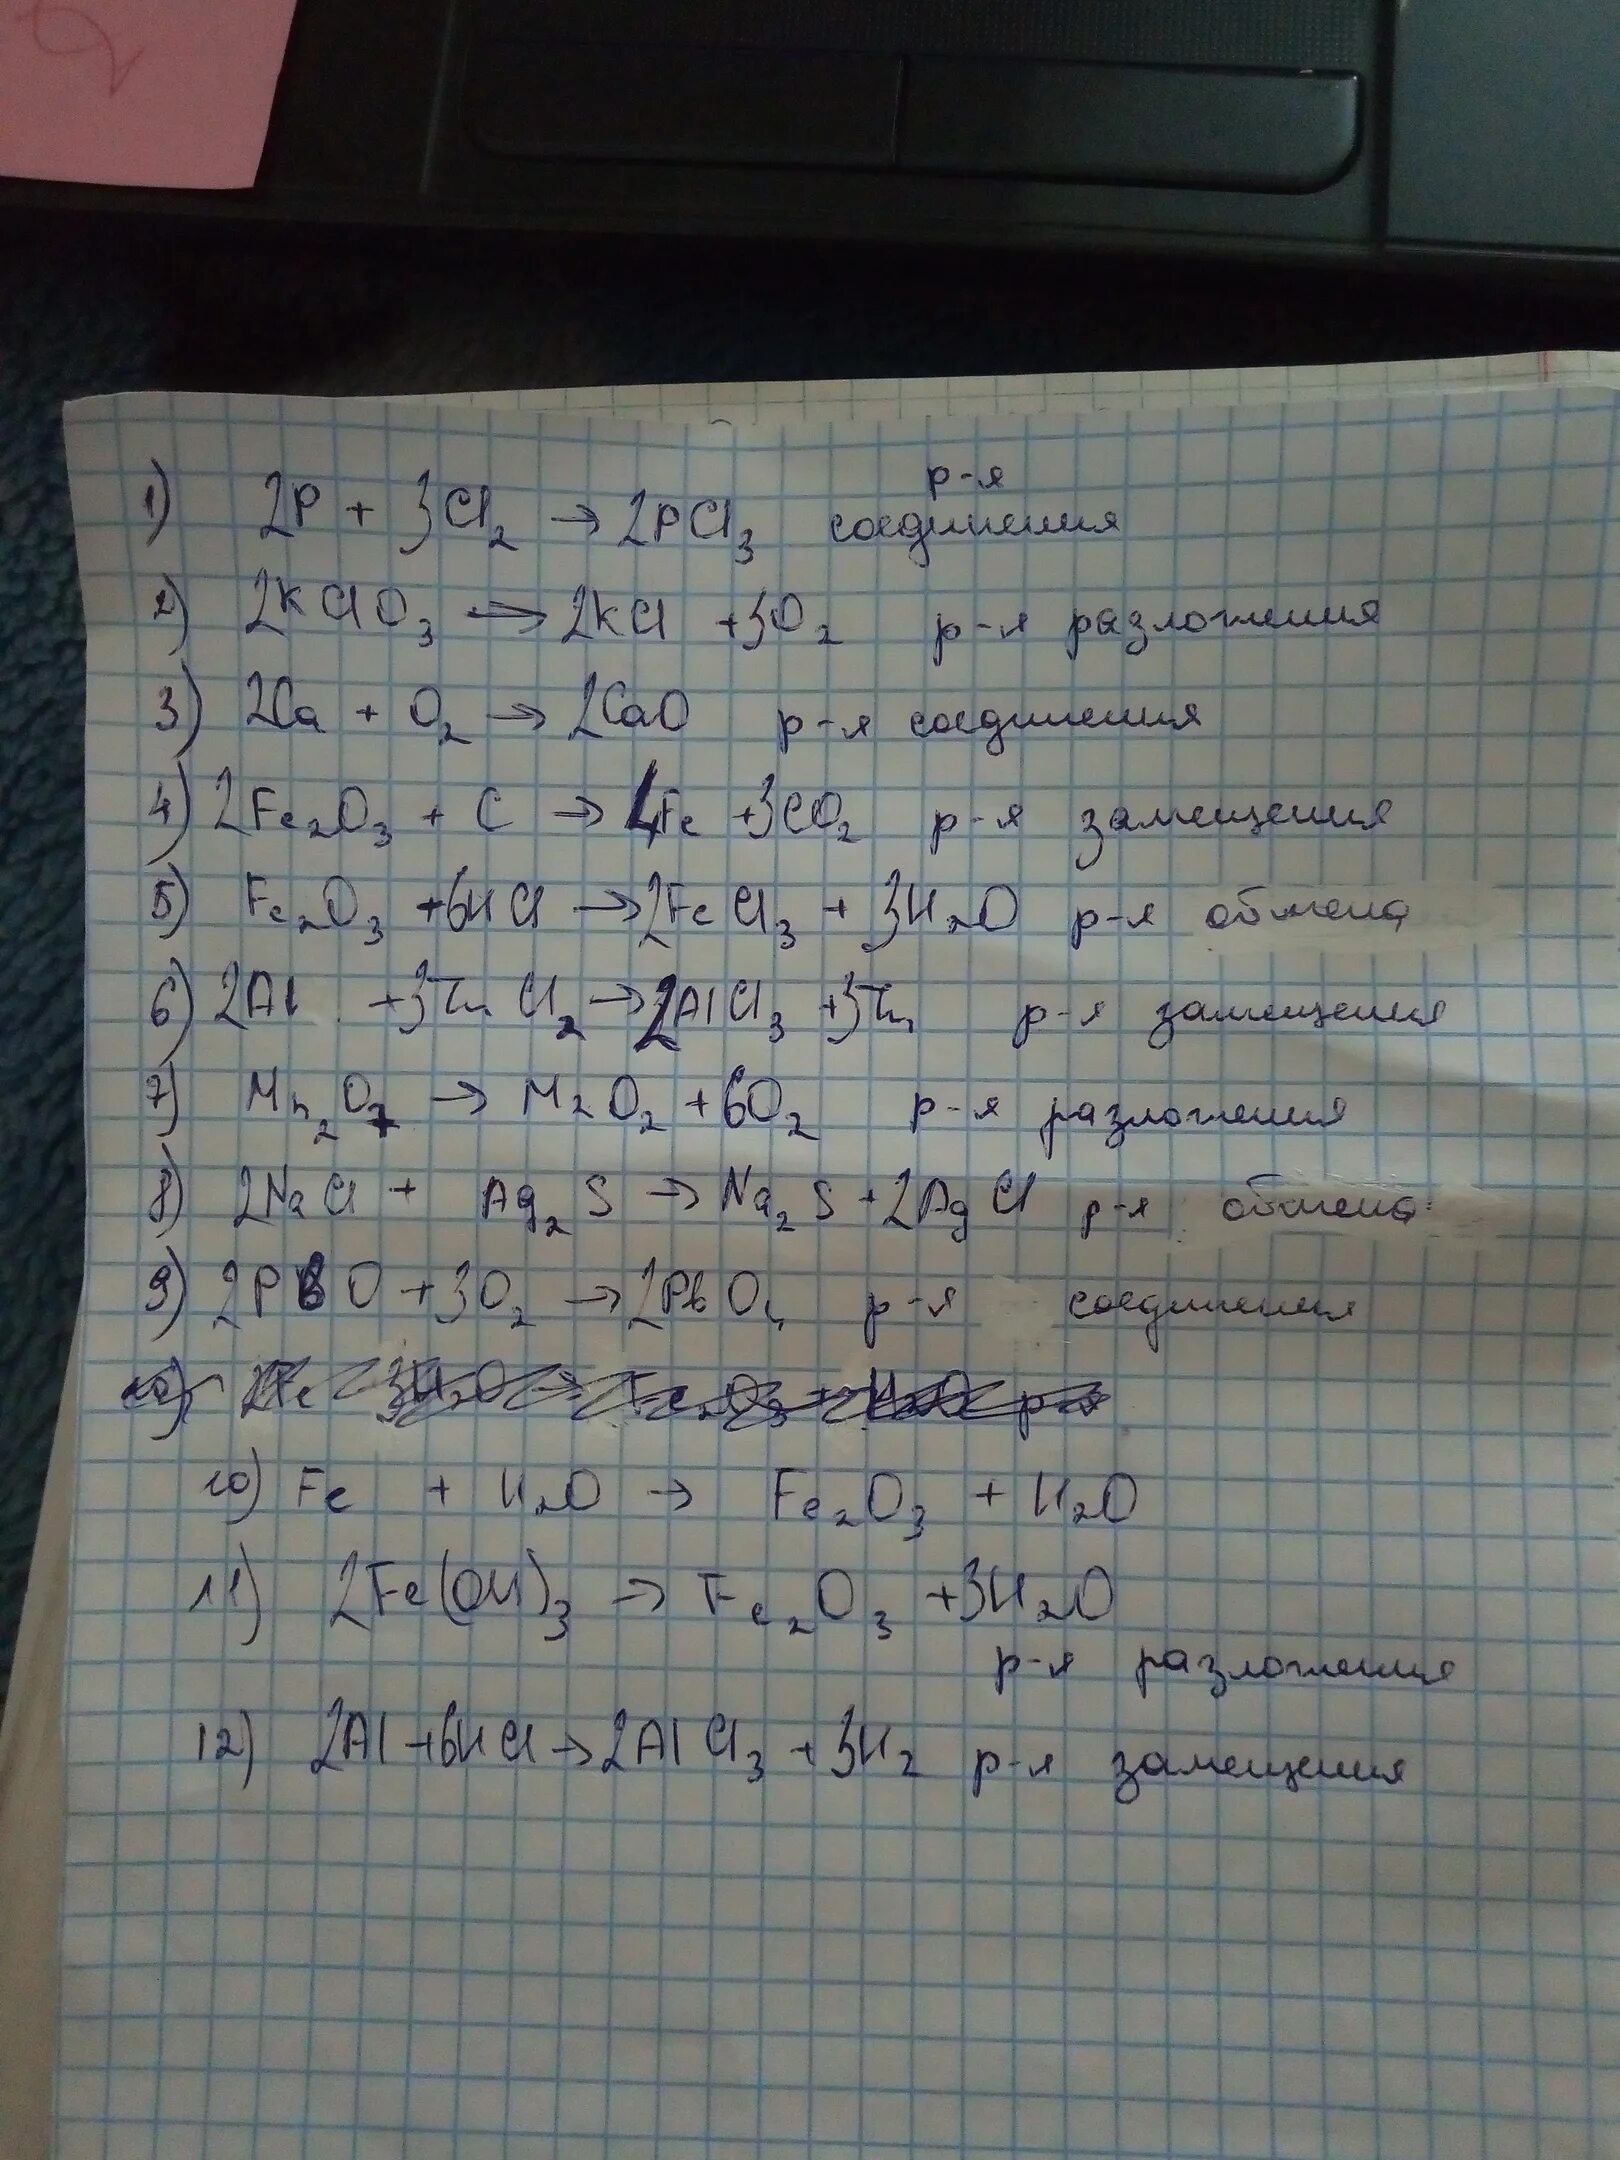 1) 2P + 3Cl₂ → 2PCl₃ р-я соединения
2) 2KClO₃ → 2KCl + 3O₂ р-я разложения
3) 2Ca + O₂ → 2CaO р-я соединения
4) 2Fe₂O₃ + C → 4Fe + 3CO₂ р-я замещения
5) Fe₂O₃ + 6HCl → 2FeCl₃ + 3H₂O р-я обмена
6) 2Al + 3ZnCl₂ → 2AlCl₃ + 3Zn р-я замещения
7) Mn₂O₇ → MnO₂ + 6O₂ р-я разложения
8) 2NaCl + Ag₂S → Na₂S + 2AgCl р-я обмена
9) 2PbO + 3O₂ → 2PbO₄ р-я соединения
10) Fe + H₂O → Fe₂O₃ + H₂O
11) 2Fe(OH)₃ → Fe₂O₃ + 3H₂O
р-я разложения
12) 2Al + 6HCl → 2AlCl₃ + 3H₂ р-я замещения